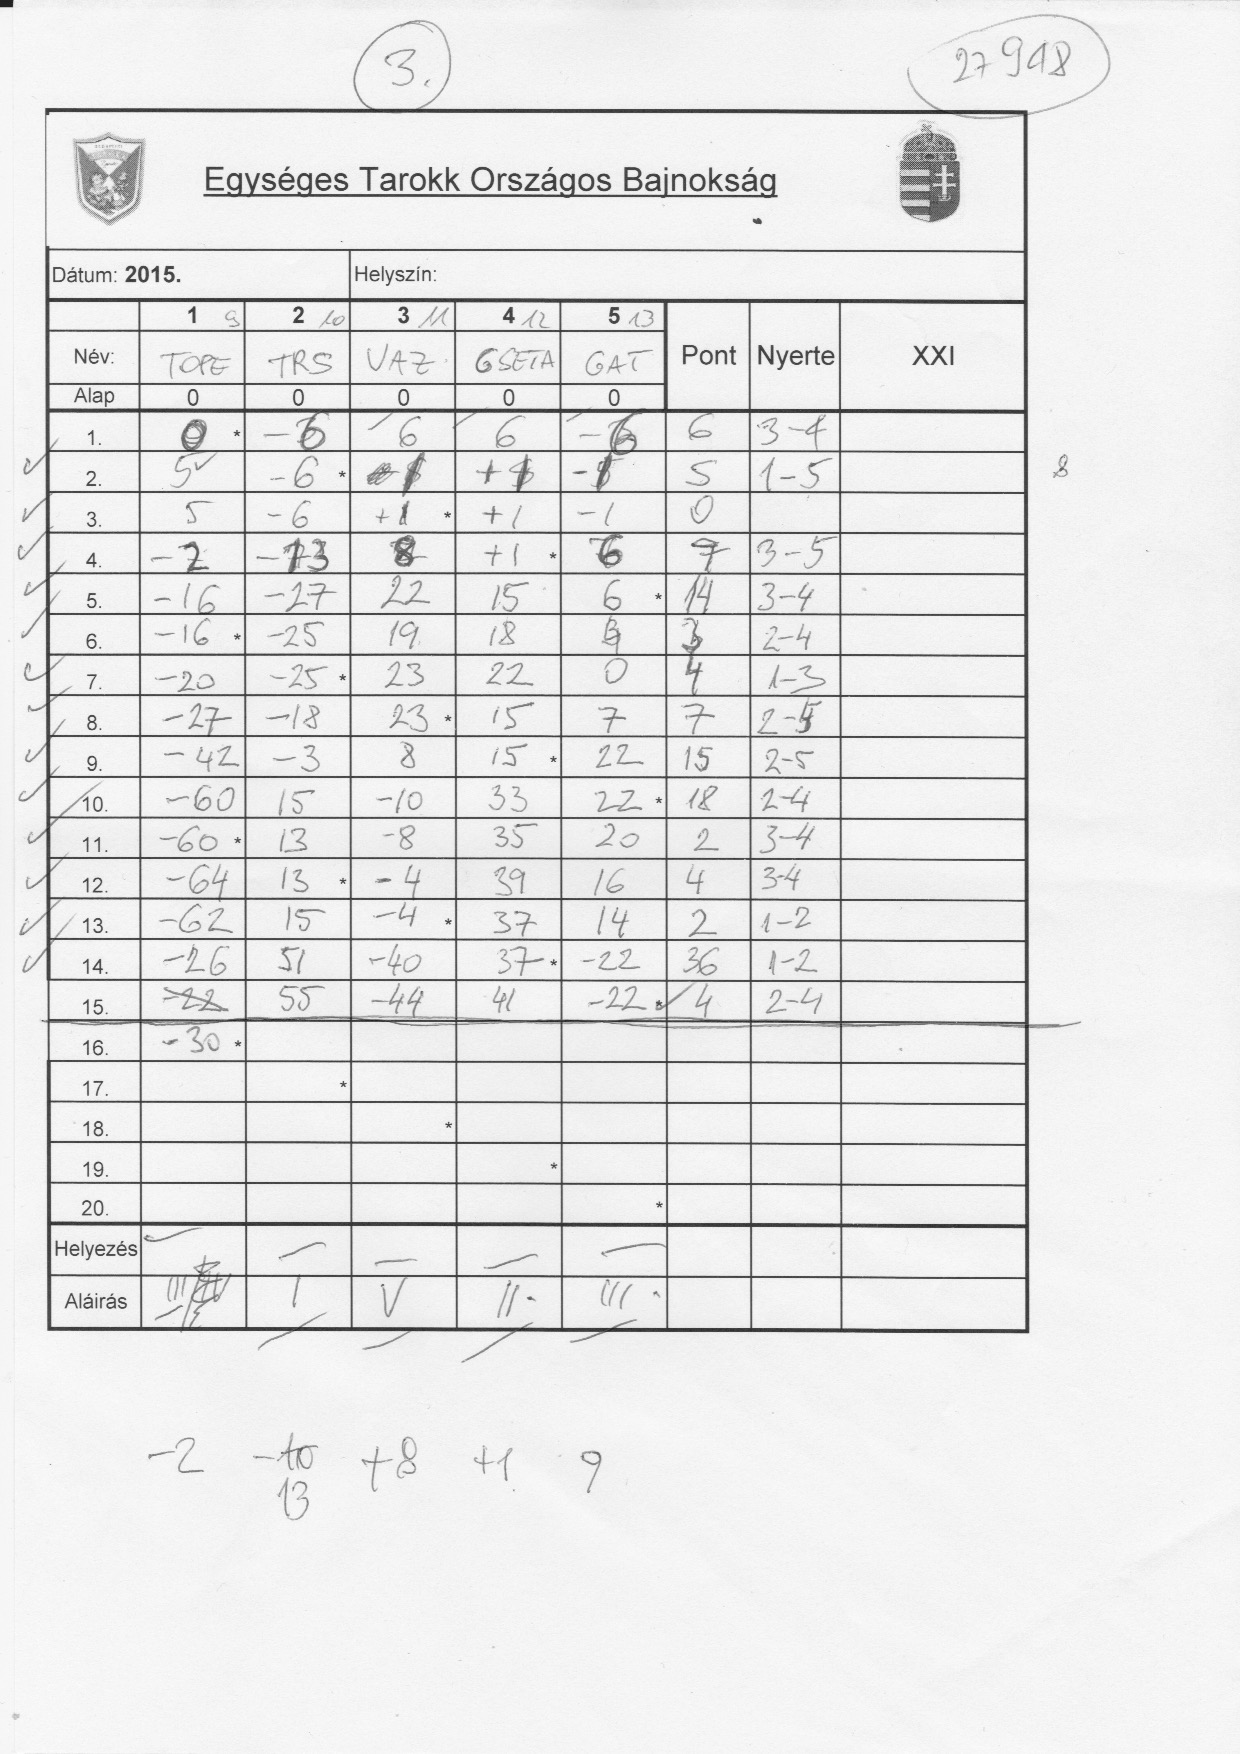 3. 27948
Egységes Tarokk Országos Bajnokság
Dátum: 2015. Helyszín:
1 9 2 10 3 11 4 12 5 13 Pont Nyerte XXI
Név: TOPE TRS VAZ GSETA GAT
Alap 0 0 0 0 0
1. 0 * -6 6 6 -6 6 3-4
2. 5 -6 * +1 -1 5 1-5 8
3. 5 -6 +1 * +1 -1 0
4. -2 -13 8 +1 * 6 7 3-5
5. -16 -27 22 15 6 * 14 3-4
6. -16 * -25 19 18 3 2-4
7. -20 -25 * 23 22 0 4 1-3
8. -27 -18 23 * 15 7 7 2-5
9. -42 -3 8 15 * 22 15 2-5
10. -60 15 -10 33 22 * 18 2-4
11. -60 * 13 -8 35 20 2 3-4
12. -64 13 * -4 39 16 4 3-4
13. -62 15 -4 * 37 14 2 1-2
14. -26 51 -40 37 * -22 36 1-2
15. -22 55 -44 41 -22 * 4 2-4
16. -30 *
17. *
18. *
19. *
20. *
Helyezés
Aláírás I V II. III.
-2 -10 +8 +1 9
13